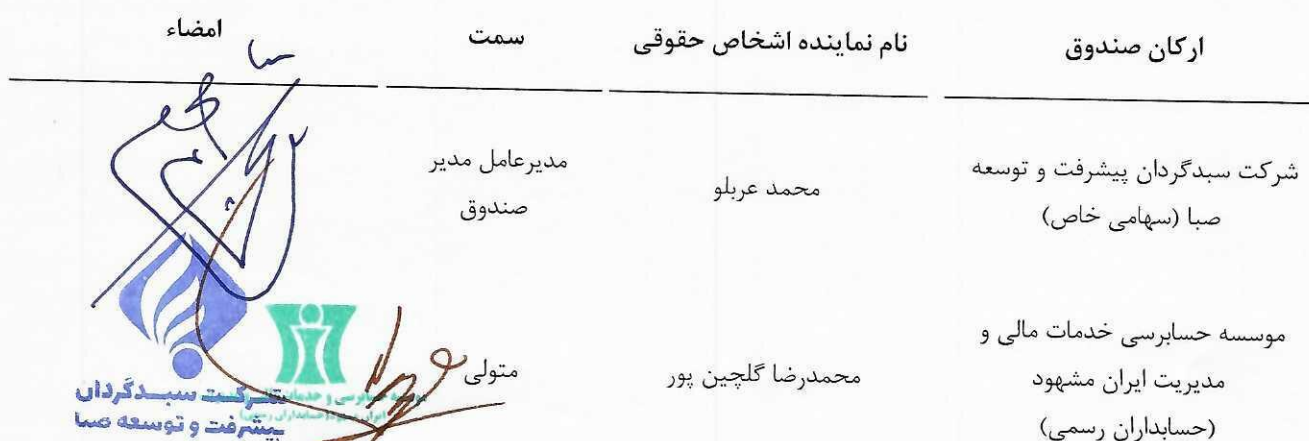 ارکان صندوق نام نماینده اشخاص حقوقی سمت امضاء
شرکت سبدگردان پیشرفت و توسعه
صبا (سهامی خاص)
محمد عربلو
مدیرعامل مدیر
صندوق
موسسه حسابرسی خدمات مالی و
مدیریت ایران مشهود
(حسابداران رسمی)
محمدرضا گلچین پور
متولی
شرکت سبدگردان
پیشرفت و توسعه صبا